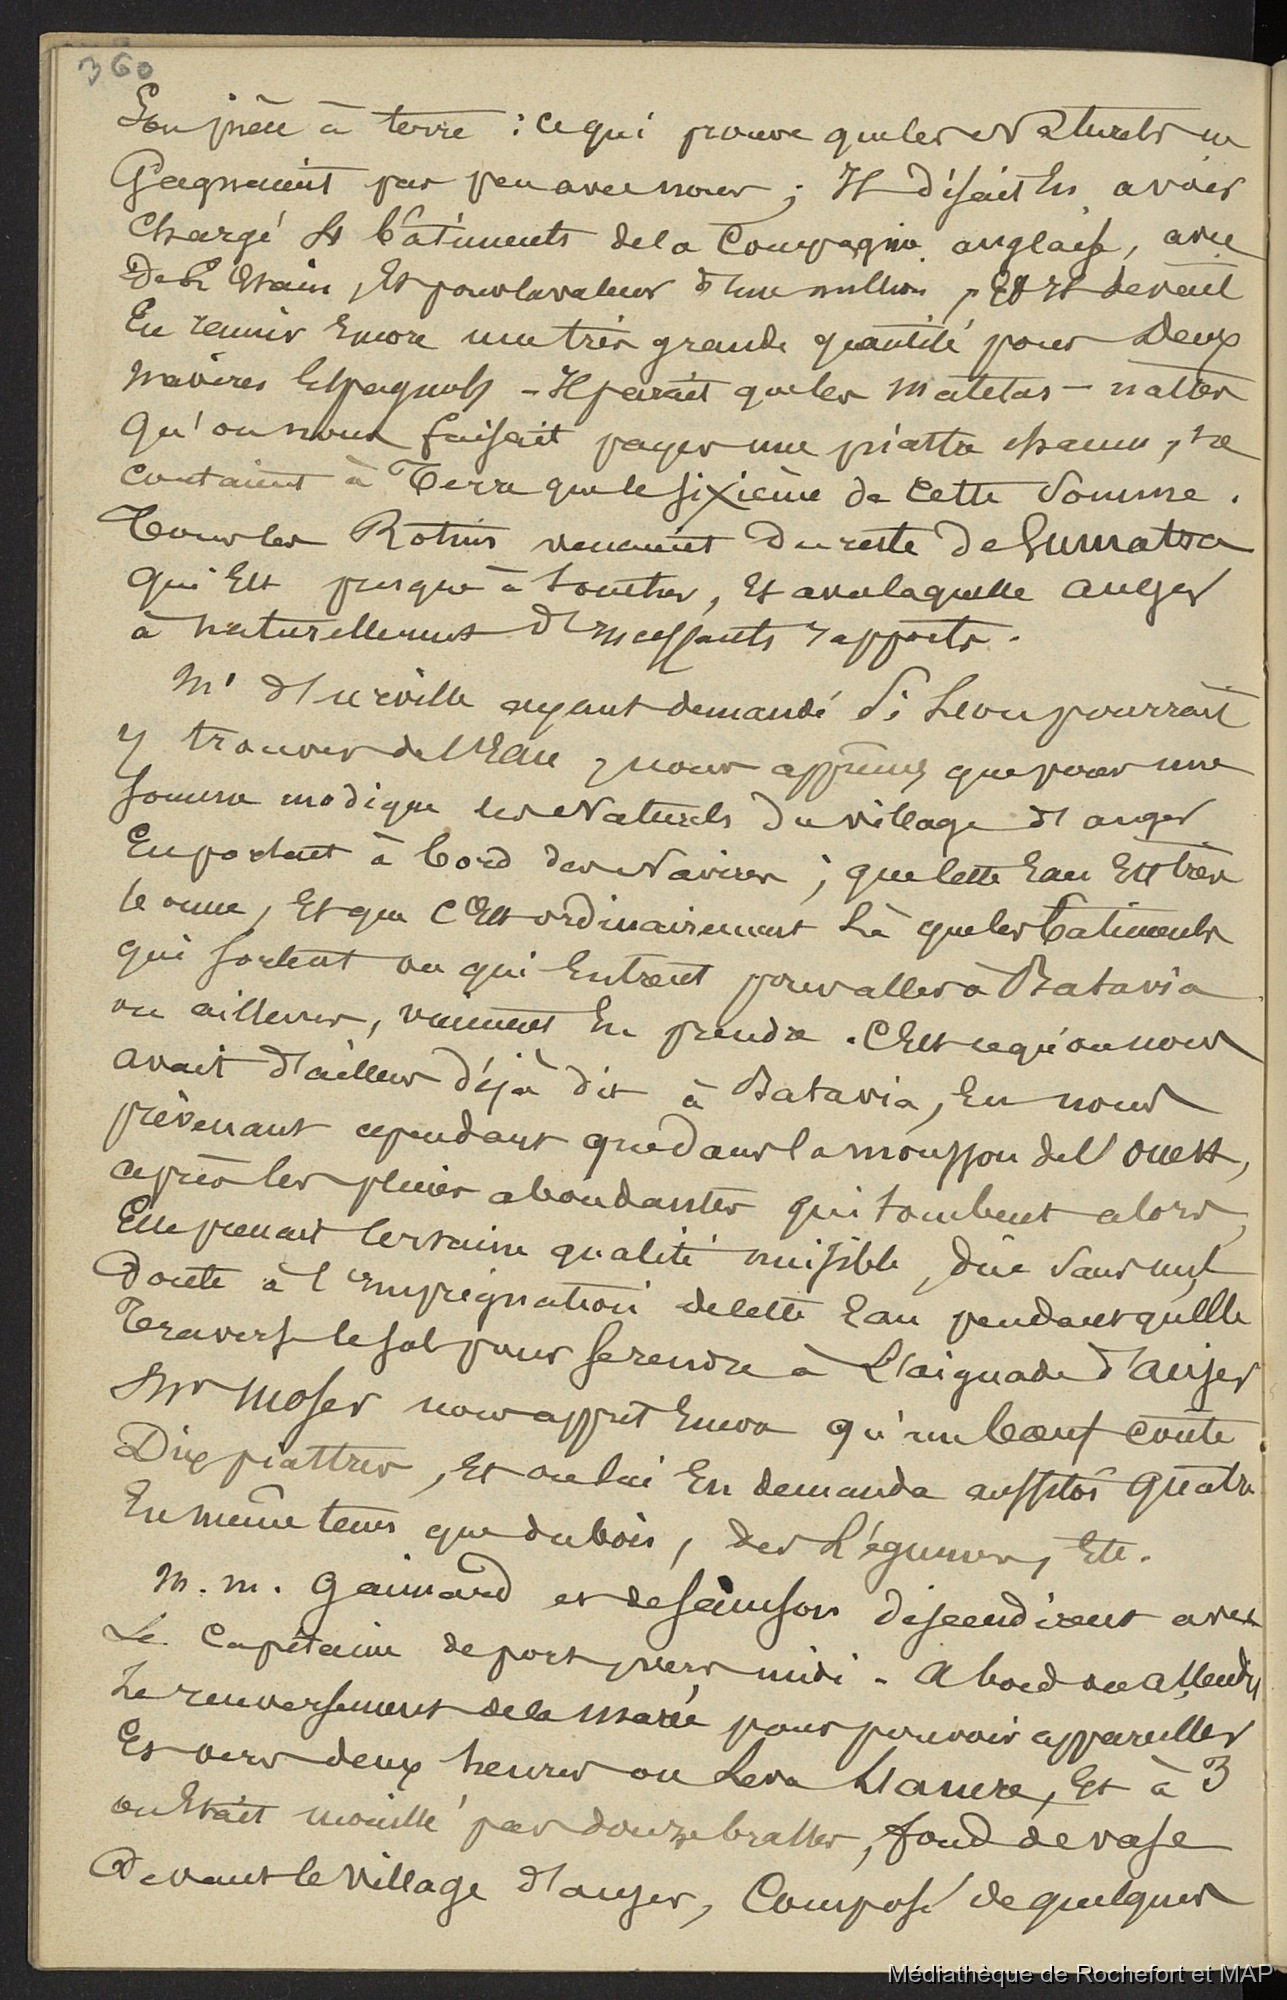 360
Son prix à terre : ce qui prouve que les Naturels ne
Gagnaient pas peu avec nous ; Il disait En avoir
Chargé  bâtiments de la Compagnie anglaise, avec
De l'Etain, Et pour la valeur d'Une million, Et Il devait
En reunir Encore une très grande quantité pour Deux
navires Espagnols - Il parait que les matelas - nattes
Qu'on nous faisait payer une piastre chacun, ne
coutaient à Terre que le sixième de Cette Somme.
Tous les Rotins venaient du reste de Sumatra
qui Est presque à toucher, Et avec laquelle anyer
à naturellement D'Incessants rapports.
Mr d'Urville ayant demandé Si L'on pourrait
y trouver de l'Eau, nous apprîmes que pour une
somme modique les Naturels du village d'anyer
En portent à bord des Navires ; que Cette Eau Est très
bonne, Et que C'Est ordinairement Là que les Batiments
qui sortent ou qui Entrent pour aller à Batavia
ou ailleurs, viennent En prendre. C'Est ce qu'on nous
avait d'ailleurs déjà dit à Batavia, En nous
prévenant cependant que dans la mousson de l'ouest,
après les pluies abondantes qui tombent alors,
Elle prenait Certaine qualité nuisible, dûe Sans nul
Doute à l'Impregnation de Cette Eau pendant qu'Elle
Traverse le sol pour se rendre à L'aiguade d'anyer
Mr Moser nous apprit Encore qu'un boeuf coute
Dix piastres, Et on lui En demanda aussitôt Quatre
En même tems que du bois, des Légumes, Etc.
M.M. Gaimard et desainson descendirent avec
Le Capitaine de port, vers midi - A bord on attendit
Le renversement de la marée pour pouvoir appareiller
Et vers deux heures on Leva L'ancre, Et à 3
on Etait mouillé par douze brasses, fond de vase
Devant le village d'anyer, Composé de quelques
Médiathèque de Rochefort et MAP